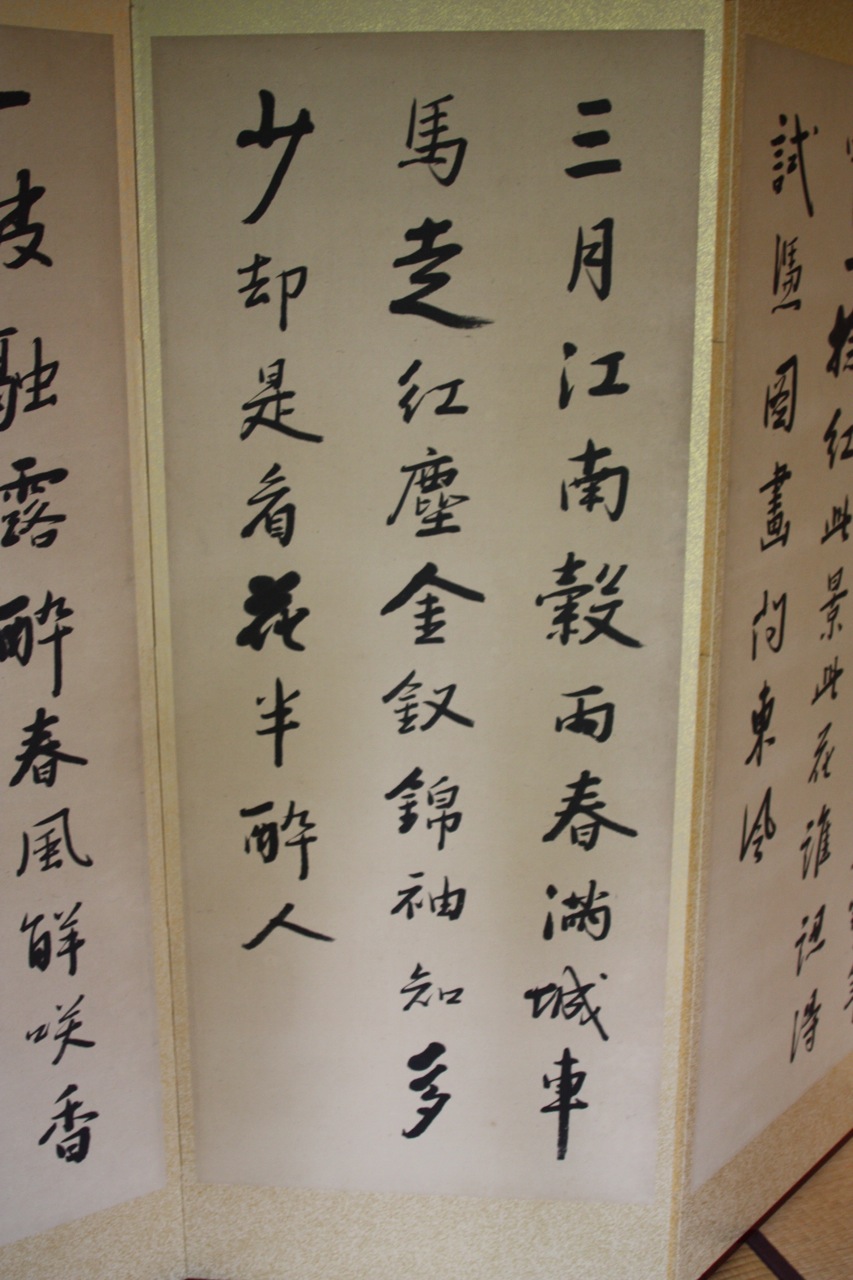 一捻紅此景此花誰認得
試憑圖畫問東風
三月江南穀雨春満城車
馬走紅塵金釵錦袖知多
少却是看花半酔人
融露酔春風觧咲香